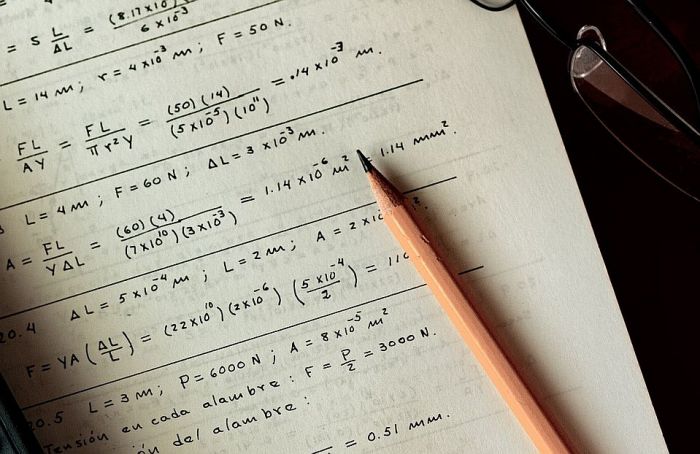 = 5 L/ΔL = (8.17×10)/6×10⁻³
L = 14 m; r = 4×10⁻³ m; F = 50 N.
FL/AY = FL/πr²Y = (50)(14)/(5×10⁻⁵)(10¹¹) = .14×10⁻³ m.
L = 4 m; F = 60 N; ΔL = 3×10⁻³ m.
A = FL/YΔL = (60)(4)/(7×10¹⁰)(3×10⁻³) = 1.14×10⁻⁶ m² = 1.14 mm².
20.4 ΔL = 5×10⁻⁴ m; L = 2 m; A = 2×10
F = YA(ΔL/L) = (22×10¹⁰)(2×10⁻⁶)(5×10⁻⁴/2) = 110
20.5 L = 3 m; P = 6000 N; A = 8×10⁻⁵ m²
Tensión en cada alambre: F = P/2 = 3000 N.
del alambre:
= 0.51 mm.